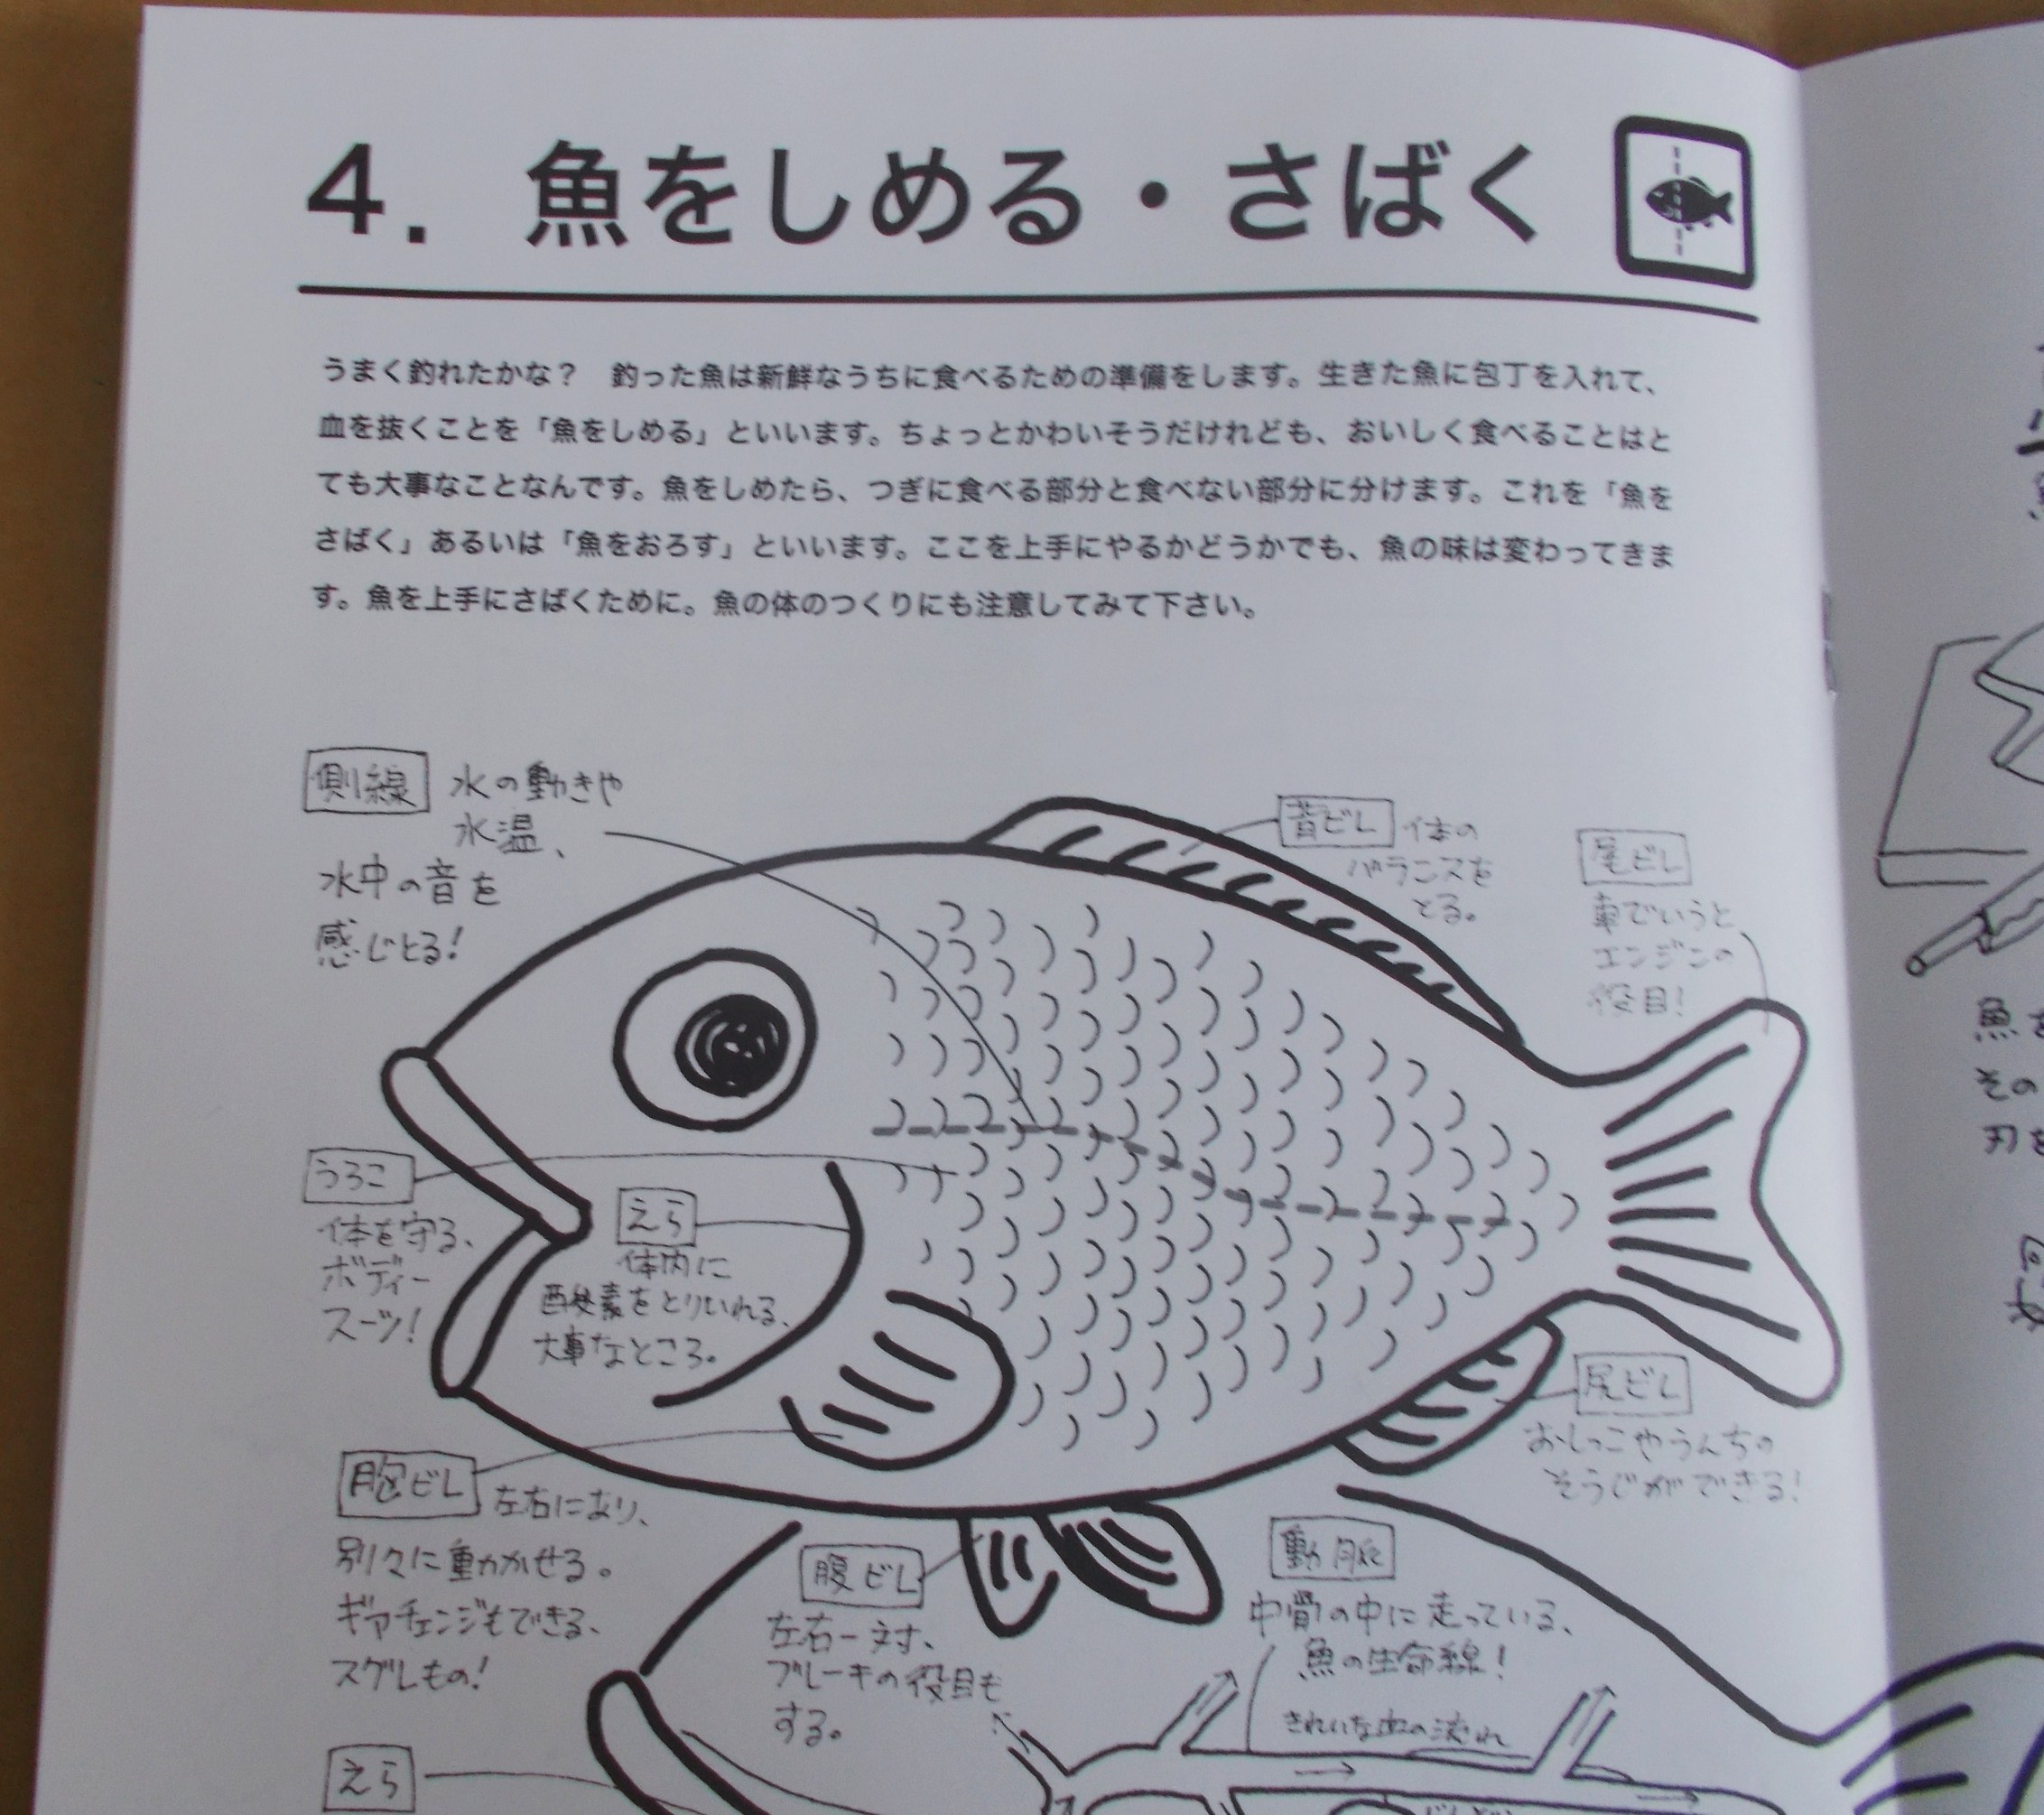 4. 魚をしめる・さばく
うまく釣れたかな？　釣った魚は新鮮なうちに食べるための準備をします。生きた魚に包丁を入れて、
血を抜くことを「魚をしめる」といいます。ちょっとかわいそうだけれども、おいしく食べることはと
ても大事なことなんです。魚をしめたら、つぎに食べる部分と食べない部分に分けます。これを「魚を
さばく」あるいは「魚をおろす」といいます。ここを上手にやるかどうかでも、魚の味は変わってきま
す。魚を上手にさばくために。魚の体のつくりにも注意してみて下さい。
側線
水の動きや
水温、
水中の音を
感じとる！
背ビレ
体の
バランスを
とる。
尾ビレ
車でいうと
エンジンの
役目！
うろこ
体を守る、
ボディー
スーツ！
えら
体内に
酸素をとりいれる、
大事なところ。
胸ビレ
左右にあり、
別々に動かせる。
ギアチェンジもできる、
スグレもの！
腹ビレ
左右一対、
ブレーキの役目も
する。
尻ビレ
おしっこやうんちの
そうじができる！
動脈
中骨の中に走っている、
魚の生命線！
きれいな血の流れ
えら
魚を
その
刃を